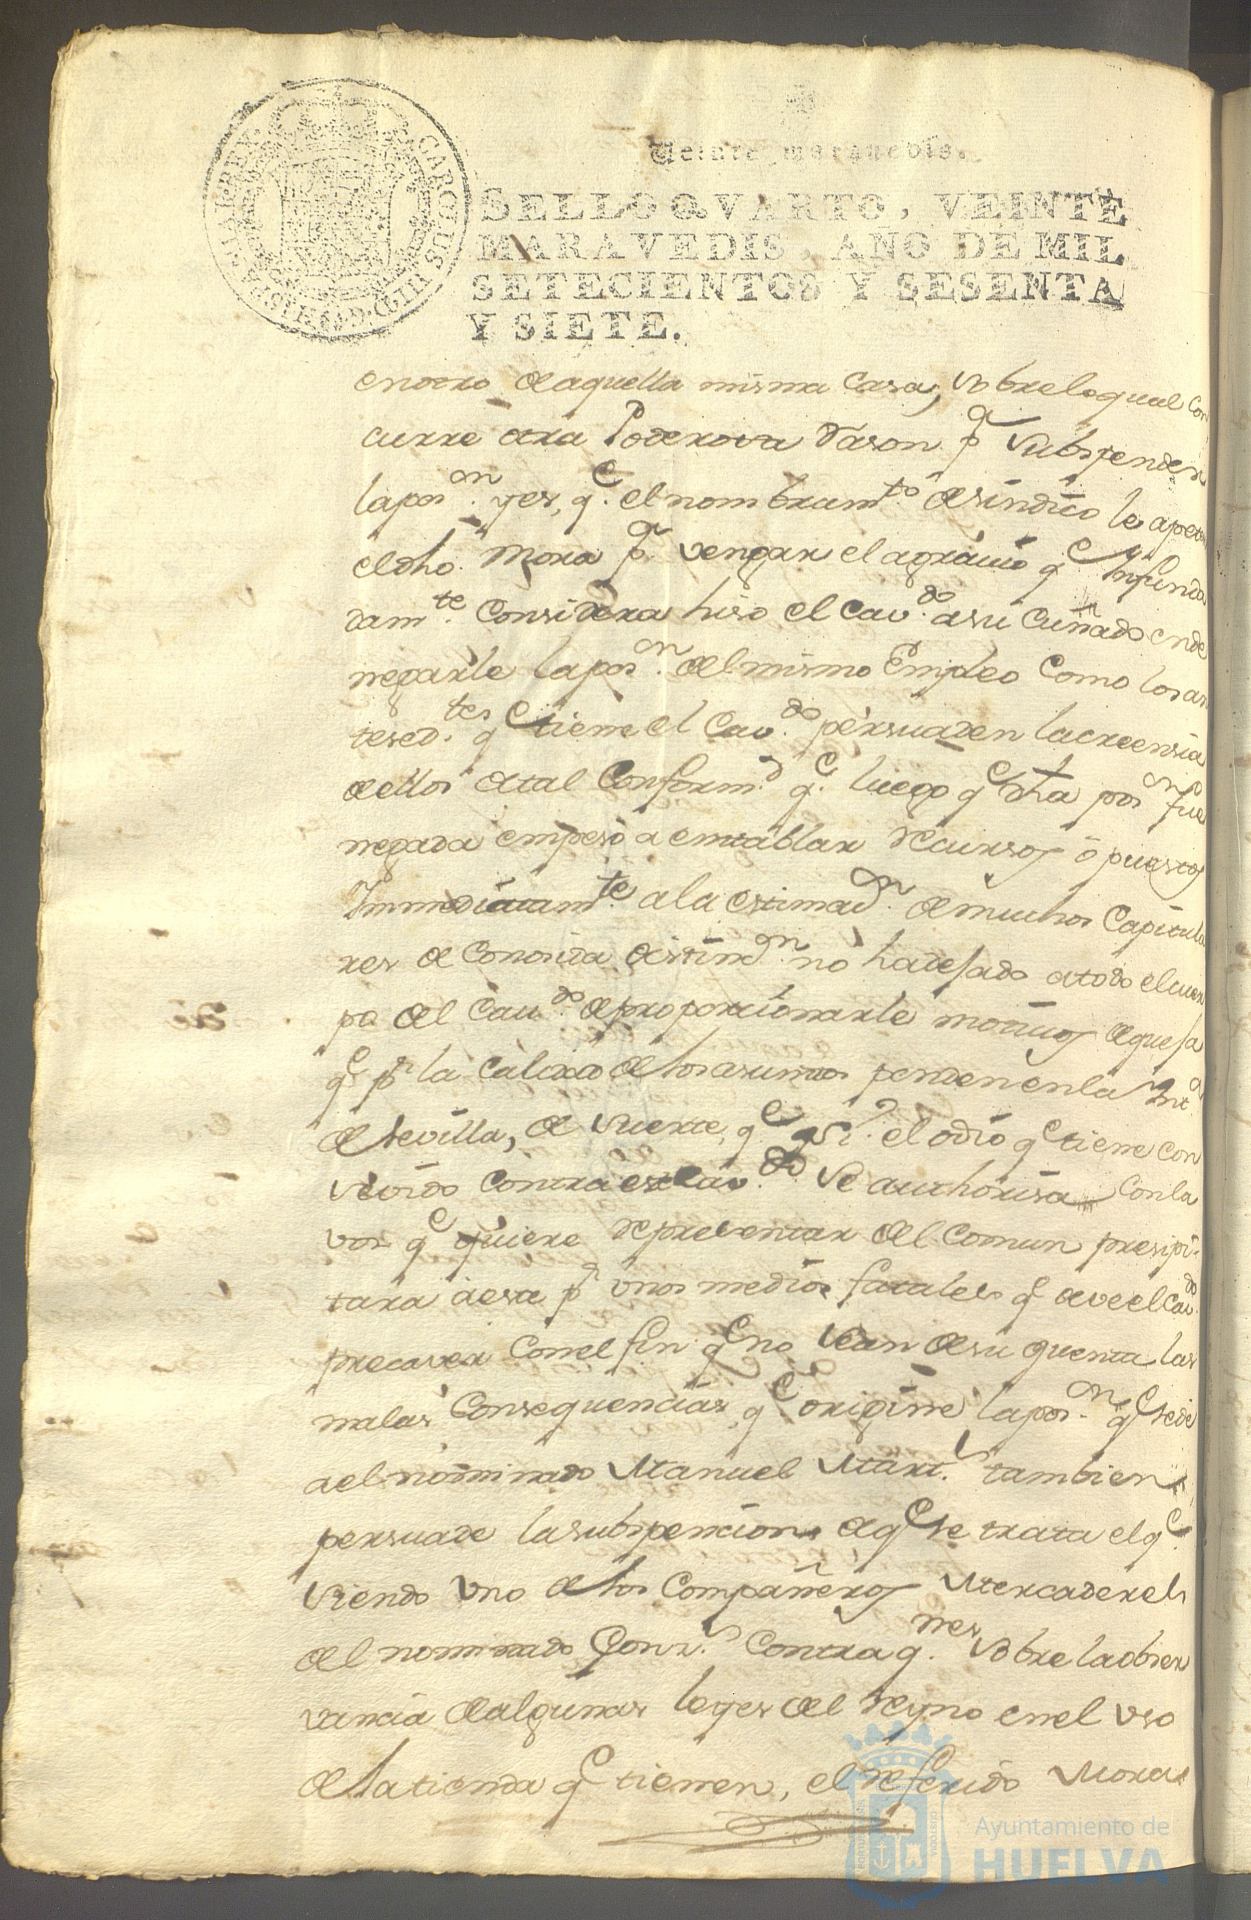 CAROLUS III D G HISPANIAR REX
Veinte maravedis.
SELLO QVARTO, VEINTE
MARAVEDIS, AÑO DE MIL
SETECIENTOS Y SESENTA
Y SIETE.
en otro de aquella misma Casa, sobre lo qual con
curre otra Poderosa rason pª subspender
la posⁿ. y es, qᵉ. el nombramᵗᵒ. de sindico le apete
el dho. Mora pª. vengar el agravio qᵉ Infunda
damᵗᵉ. Considera hiso el Cavᵈᵒ. a su Cuñado en de
negarle la posⁿ. del mismo Empleo Como los an
tesedᵗᵉˢ. qᵉ tiene el Cavᵈᵒ. persuaden la creensia
de ellos de tal Conformᵈ. qᵉ. luego qᵉ dha posⁿ fue
negada empesó a entablar recursos ópuestos
Immediatamᵗᵉ. a la estimasⁿ. de muchos Capitula
res de Conosida distinsⁿ. no ha dejado a todo el cuer
po del Cavᵈᵒ. de proporcionarle motivos de queja
qᵉ pʳ la calidad de los asumtos penden en la Intᵃ
de Sevilla, de suerte, qᵉ si el odio qᵉ tiene con
sevido contra este Cavᵈᵒ. se authorisa Con la
vos qᵉ quiere representar del Comun presipi
tara a esa pʳ unos medios fatales qᵉ deve el Cavᵈᵒ.
precaver Con el fin qᵉ no sean de su quenta las
malas Consequencias qᵉ origine la posⁿ. qᵉ se dé
a el nominado Manuel Martˢ. tambien
persuade la subspencion de qᵉ se trata el qᵉ.
siendo uno de los Compañeros Mercaderes
del nominado Gonzˢ. Contra qⁿᵉˢ. sobre la obser
vancia de algunas leyes del reyno en el uso
de la tienda qᵉ tienen, el referido Mora
Ayuntamiento de
HUELVA